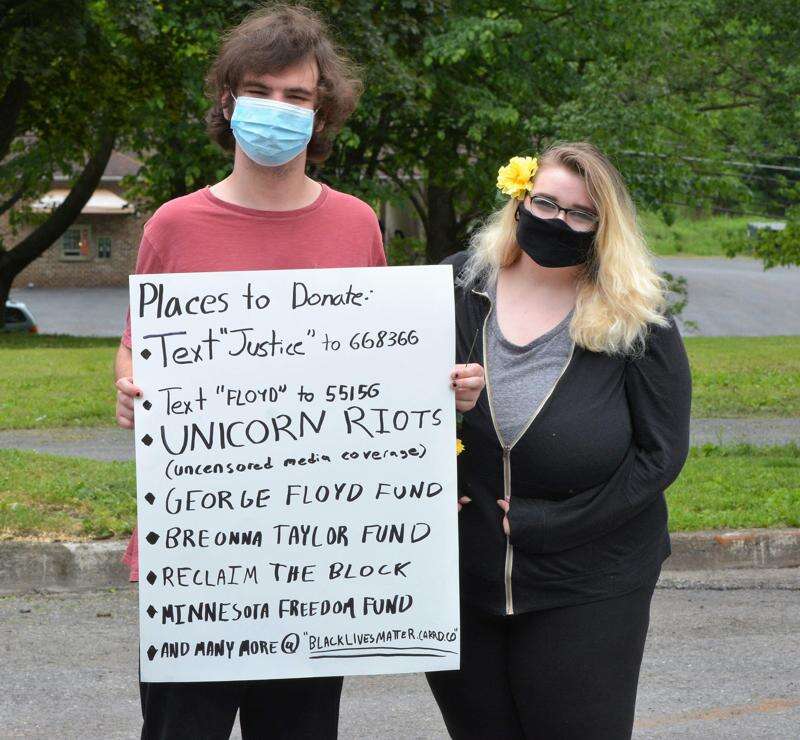 Places to Donate:
• Text "Justice" to 668366
• Text "FLOYD" to 55156
• UNICORN RIOTS
(uncensored media coverage)
• GEORGE FLOYD FUND
• BREONNA TAYLOR FUND
• RECLAIM THE BLOCK
• MINNESOTA FREEDOM FUND
• AND MANY MORE @ "BLACKLIVESMATTER.CARRD.CO"